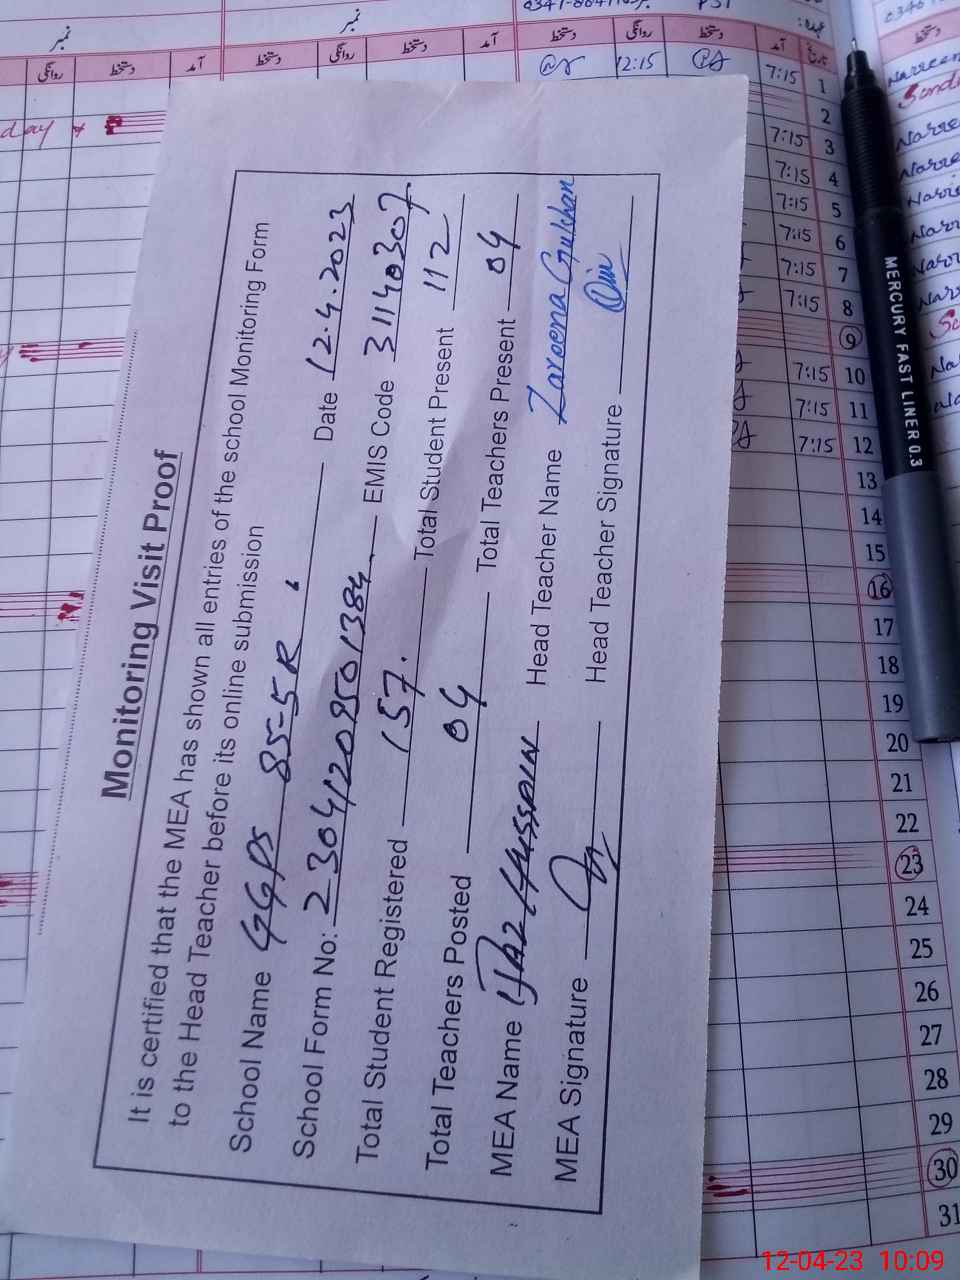 Monitoring Visit Proof
It is certified that the MEA has shown all entries of the school Monitoring Form
to the Head Teacher before its online submission
School Name GGPS 85-5R Date 12.4.2023
School Form No: 23041209501384 EMIS Code 31140307
Total Student Registered 157. Total Student Present 112
Total Teachers Posted 04 Total Teachers Present 04
MEA Name IJAZ HUSSAIN Head Teacher Name Zareena Gulshan
MEA Signature Head Teacher Signature
نمبر
نمبر
عہدہ:
PST
روانگی دستخط آمد دستخط روانگی دستخط آمد دستخط روانگی دستخط آمد تاریخ
12:15 7:15 1
2
7:15 3
7:15 4
7:15 5
7:15 6
7:15 7
7:15 8
9
7:15 10
7:15 11
7:15 12
13
14
15
16
17
18
19
20
21
22
23
24
25
26
27
28
29
30
31
day
دستخط
MERCURY FAST LINER 0.3
12-04-23 10:09